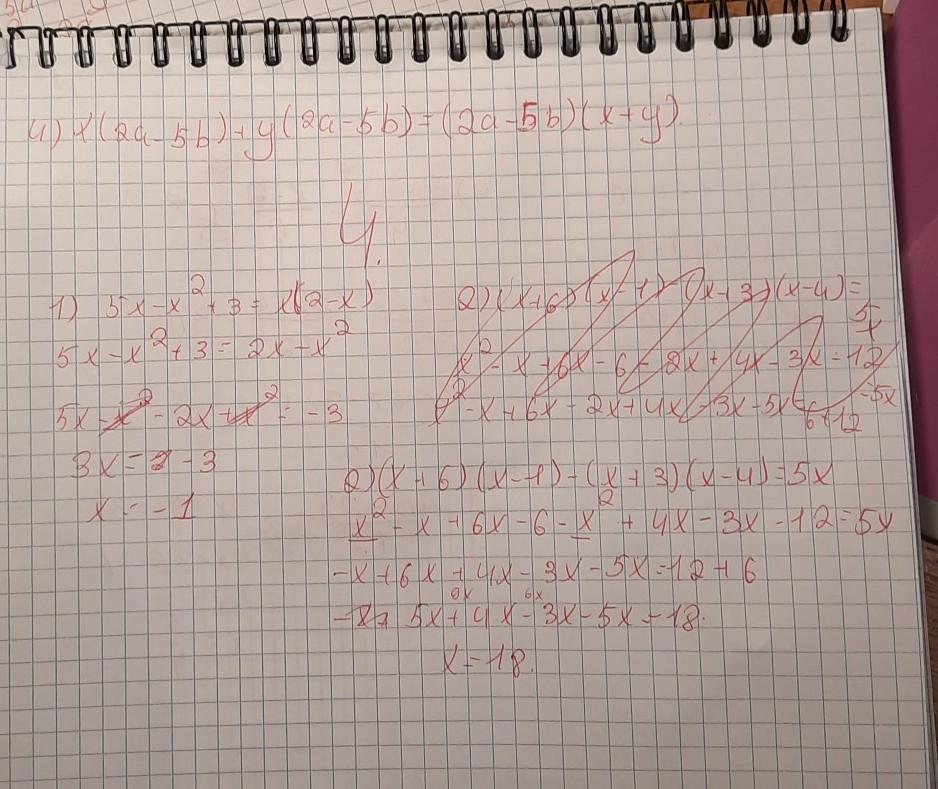 4) x(2a-5b)+y(2a-5b)=(2a-5b)(x+y)
4.
1) 5x-x²+3=x(2-x)
5x-x²+3=2x-x²
5x-x²-2x+x²=-3
3x=-3
x=-1
2)(x+6)(x-1)-(x+3)(x-4)=
5x
x²-x+6x-6-2x+4x-3x-12
-5x
x²-x+6x-2x+4x-3x-5x
6+12
2)(x+6)(x-1)-(x+3)(x-4)=5x
x²-x+6x-6-x²+4x-3x-12=5x
-x+6x+4x-3x-5x=12+6
0x 6x
5x+4x-3x-5x=18.
x=18.